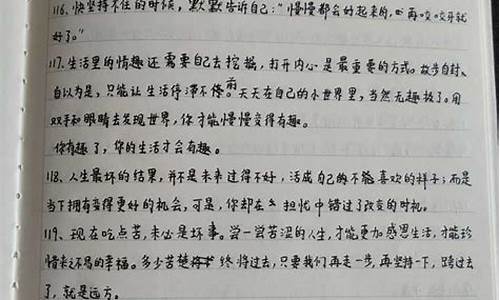 116、快坚持不住的时候，默默告诉自己：“慢慢都会好起来的，再咬咬牙就
好了。”
117.生活里的情趣还需要自己去挖掘，打开内心是最重要的方式。故步自封、
自以为是，只能让生活停滞不前。天天在自己的小世界里，当然无趣极了。用
双手和眼睛去发现世界，你才能慢慢变得有趣。
你有趣了，你的生活才会有趣。
118、人生最坏的结果，并不是未来过得不好，活成自己不能喜欢的样子；而是
当下拥有变得更好的机会，可是，你却在担忧中错过了改变的时机。
119、现在吃点苦，未必是坏事。尝一尝苦涩的人生，才能更加感恩生活，才能珍
惜来之不易的幸福。多少苦楚终将过去，只要我们再走一步，再坚持一下，跨过去
了，就是远方。